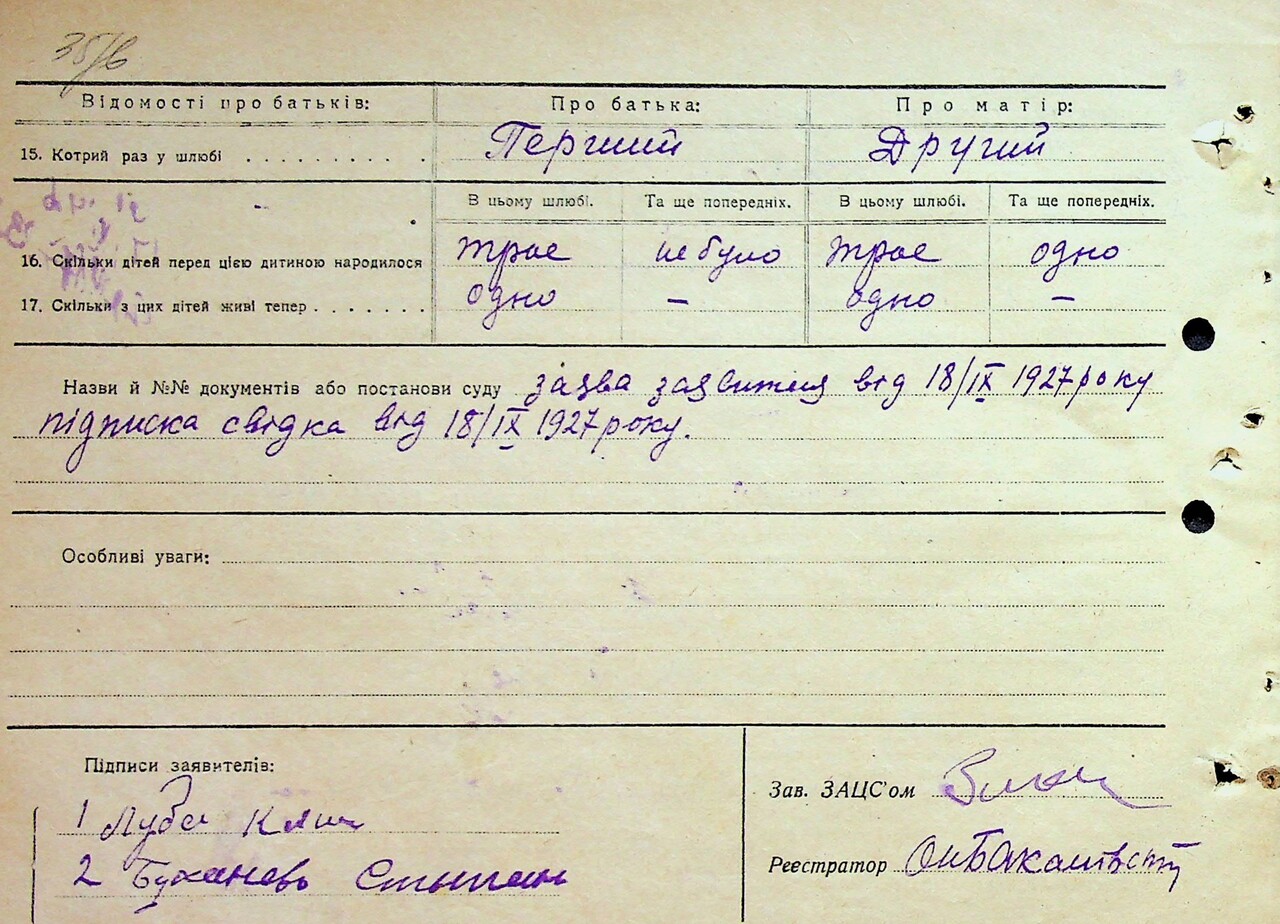 35/6
Відомості про батьків: Про батька: Про матір:
15. Котрий раз у шлюбі . . . . . . . . . . Перший Другий
В цьому шлюбі. Та ще попередніх. В цьому шлюбі. Та ще попередніх.
16. Скільки дітей перед цією дитиною народилося троє не було троє одно
17. Скільки з цих дітей живі тепер . . . . . . . одно — одно —
Назви й №№ документів або постанови суду заява заявителя від 18/IX 1927 року
підписка свідка від 18/IX 1927 року.
Особливі уваги:
Підписи заявителів:
Зав. ЗАЦС'ом
1 Луба
2
Реєстратор